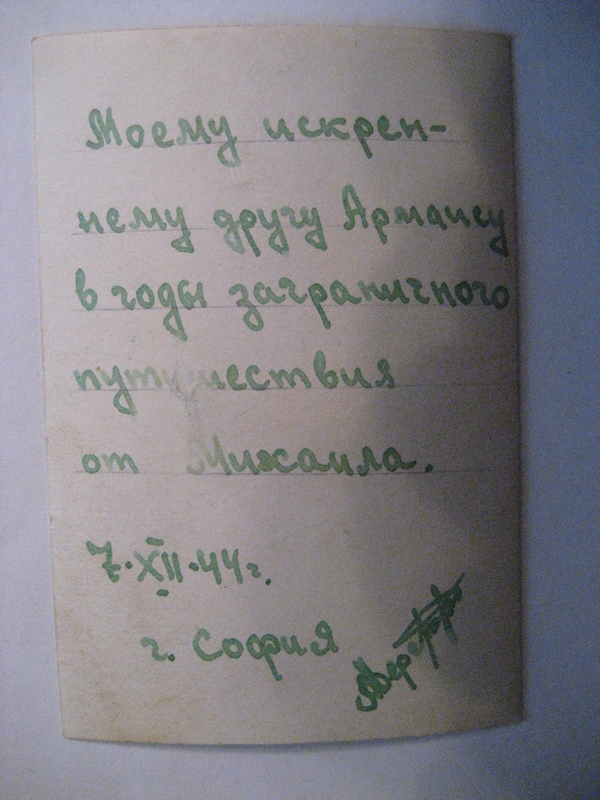 Моему искрен-
нему другу Арташеу
в годы заграничного
путишествия
от Михаила.
7·XII·44г.
г. София